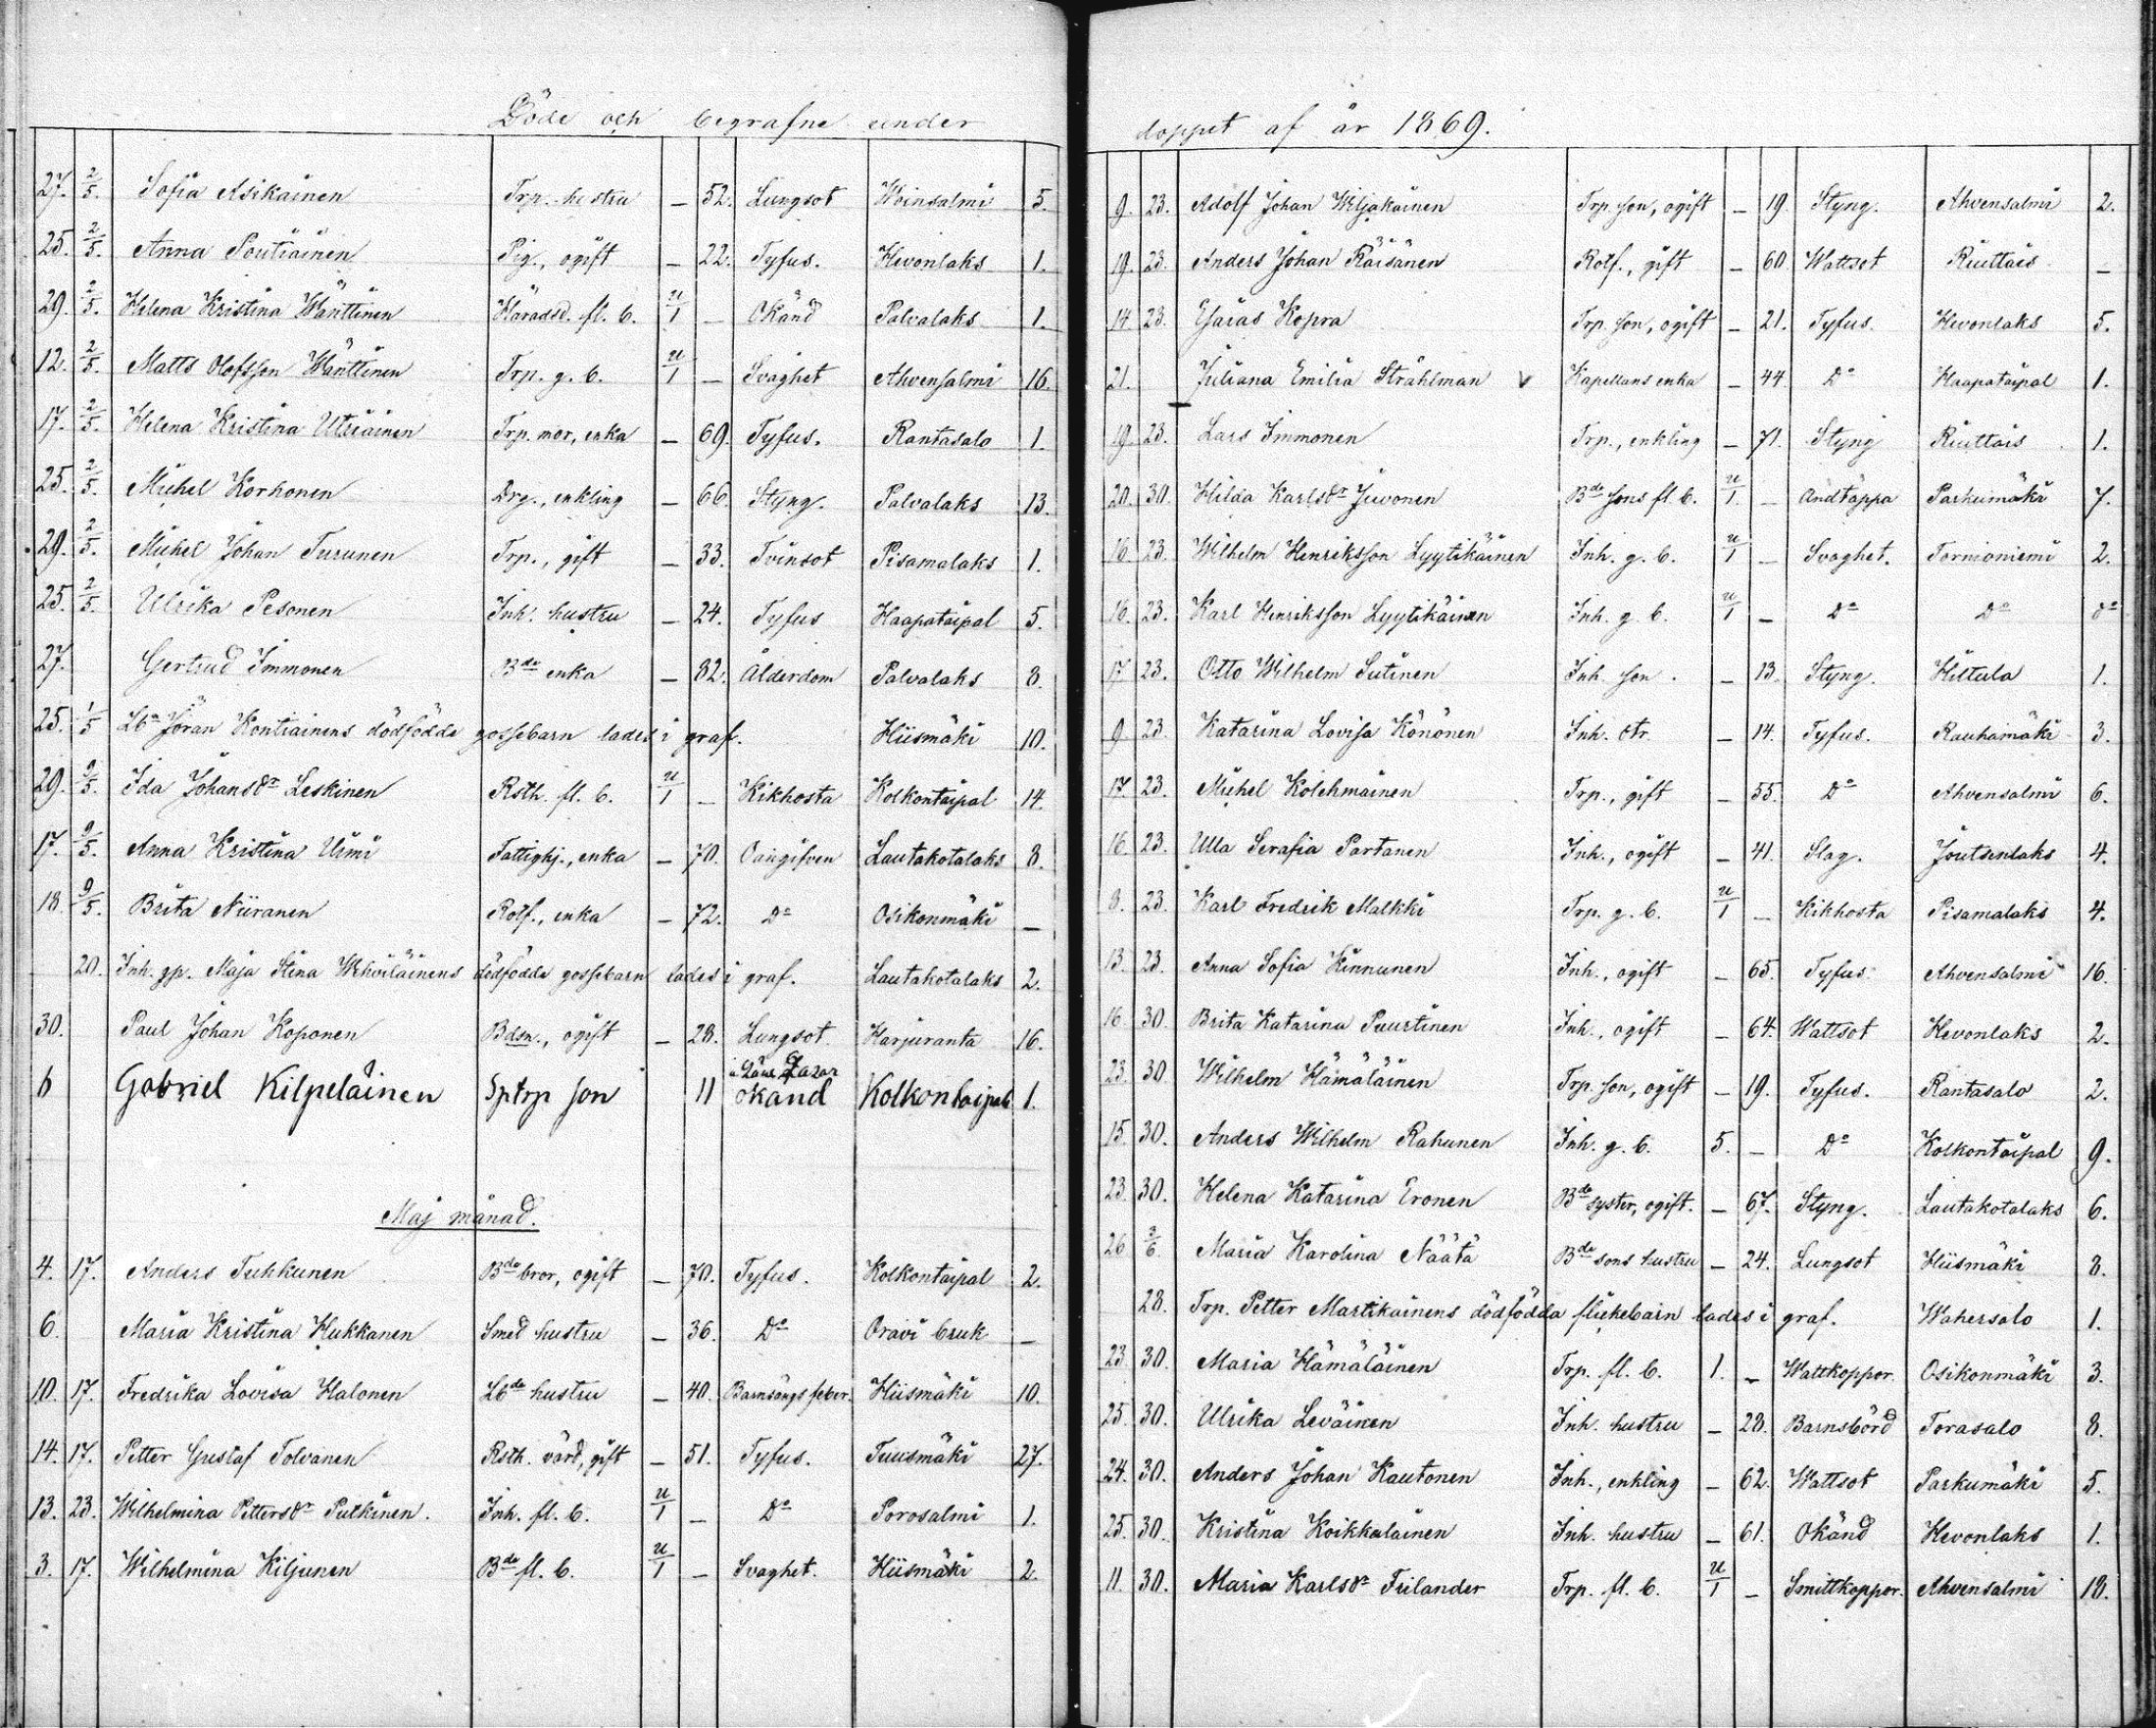 Döde och begrafne under
27. 2/5. Sofia Asikainen Trp. hustru — 52. Lungsot Woinsalmi 5.
25. 2/5. Anna Poutiainen Pig., ogift — 22. Tyfus. Hevonlaks 1.
29. 2/5. Helena Kristina Wänttinen Häradsd. fl. b. u/1 — Okänd Palvalaks 1.
12. 2/5. Matts Olofsson Wänttinen Trp. g. b. u/1 — Svaghet Ahvensalmi 16.
17. 2/5. Helena Kristina Utriainen Trp. mor, enka — 69. Tyfus. Rantasalo 1.
25. 2/5. Mihel Korhonen Drg., enkling — 66. Styng. Palvalaks 13.
29. 2/5. Mihel Johan Turunen Trp., gift — 33. Tvinsot Pisamalaks 1.
25. 2/5. Ulrika Pesonen Inh. hustru — 24. Tyfus Haapataipal 5.
27. Gertrud Immonen Bde enka — 82. Ålderdom Palvalaks 8.
25. 1/5 Lbn Jöran Kontiainens dödfödde gossebarn lades i graf. Hiismäki 10.
29. 9/5. Ida Johansdr Leskinen Rsth. fl. b. u/1 — Kikhosta Kolkontaipal 14.
17. 9/5. Anna Kristina Uimi Fattighj., enka — 70. Oangifven Lautakotalaks 8.
18. 9/5. Brita Niiranen Rotf., enka — 72. Do Osikonmäki —
20. Inh. gp. Maja Stina Wehviläinens dödfödde gossebarn lades i graf. Lautakotalaks 2.
30. Paul Johan Koponen Bdsn., ogift — 28. Lungsot. Harjuranta 16.
6 Gabriel Kilpeläinen Sptrp son 11 okand Kolkontaipal 1.
Maj månad.
4. 17. Anders Tukkunen Bde bror, ogift — 70. Tyfus. Kolkontaipal 2.
6. Maria Kristina Hukkanen Smed hustru — 36. Do Oravi bruk —
10. 17. Fredrika Lovisa Halonen Lbde hustru — 40. Barnsängsfeber. Hiismäki 10.
14. 17. Petter Gustaf Tolvanen Rsth. värd, gift — 51. Tyfus. Tuusmäki 27.
13. 23. Wilhelmina Pettersdr Putkinen. Inh. fl. b. u/1 — Do Porosalmi 1.
3. 17. Wilhelmina Kiljunen Bde fl. b. u/1 — Svaghet. Hiismäki 2.
loppet af år 1869.
9. 23. Adolf Johan Wiljakainen Trp. son, ogift — 19. Styng. Ahvensalmi 2.
19. 23. Anders Johan Räisänen Rotf., gift — 60 Wattsot Riuttais —
14 23. Esaias Kopra Trp. son, ogift — 21. Tyfus. Hevonlaks 5.
21. Juliana Emilia Stråhlman v Kapellans enka — 44 Do Haapataipal 1.
19. 23. Lars Immonen Trp., enkling — 71. Styng Riuttais 1.
20. 30. Hilda Karlsdr Juvonen Bde sons fl b. u/1. — Andtäppa Parkumäki 7.
16. 23. Wilhelm Henriksson Lyytikäinen Inh. g. b. u/1 — Svaghet. Tornioniemi 2.
16. 23. Karl Henriksson Lyytikäinen Inh. g. b. u/1 — Do Do do
17 23. Otto Wilhelm Sutinen Inh. son. — 13. Styng. Hiltula 1.
9. 23. Katarina Lovisa Könönen Inh. dtr. — 14. Tyfus. Rauhamäki 3.
17. 23. Mihel Kolehmainen Trp., gift — 55. Do Ahvensalmi 6.
16. 23. Ulla Serafia Partanen Inh., ogift — 41. Slag. Joutsenlaks 4.
8. 23. Karl Fredrik Malkki Trp. g. b. u/1 — Kikhosta Pisamalaks 4.
13. 23. Anna Sofia Kinnunen Inh., ogift — 65. Tyfus. Ahvensalmi 16.
16. 30. Brita Katarina Puurtinen Inh., ogift — 64. Wattsot Hevonlaks 2.
23. 30. Wilhelm Hämäläinen Trp. son, ogift — 19. Tyfus. Rantasalo 2.
15. 30. Anders Wilhelm Rahunen Inh. g. b. 5. — Do Kolkontaipal 9.
23. 30. Helena Katarina Eronen Bde syster, ogift. — 67. Styng. Lautakotalaks 6.
26 2/6. Maria Karolina Näätä Bde sons hustru — 24. Lungsot Hiismäki 8.
28. Trp. Petter Martikainens dödfödda flickebarn lades i graf. Wahersalo 1.
23. 30. Maria Hämäläinen Trp. fl. b. 1. — Wattkoppor. Osikonmäki 3.
25. 30. Ulrika Leväinen Inh. hustru — 28. Barnsbörd Torasalo 8.
24. 30. Anders Johan Kautonen Inh., enkling — 62. Wattsot Parkumäki 5.
25. 30. Kristina Koikkalainen Inh. hustru — 61. Okänd Hevonlaks 1.
11. 30. Maria Karlsdr Fiilander Trp. fl. b. u/1 — Smittkoppor. Ahvensalmi 18.